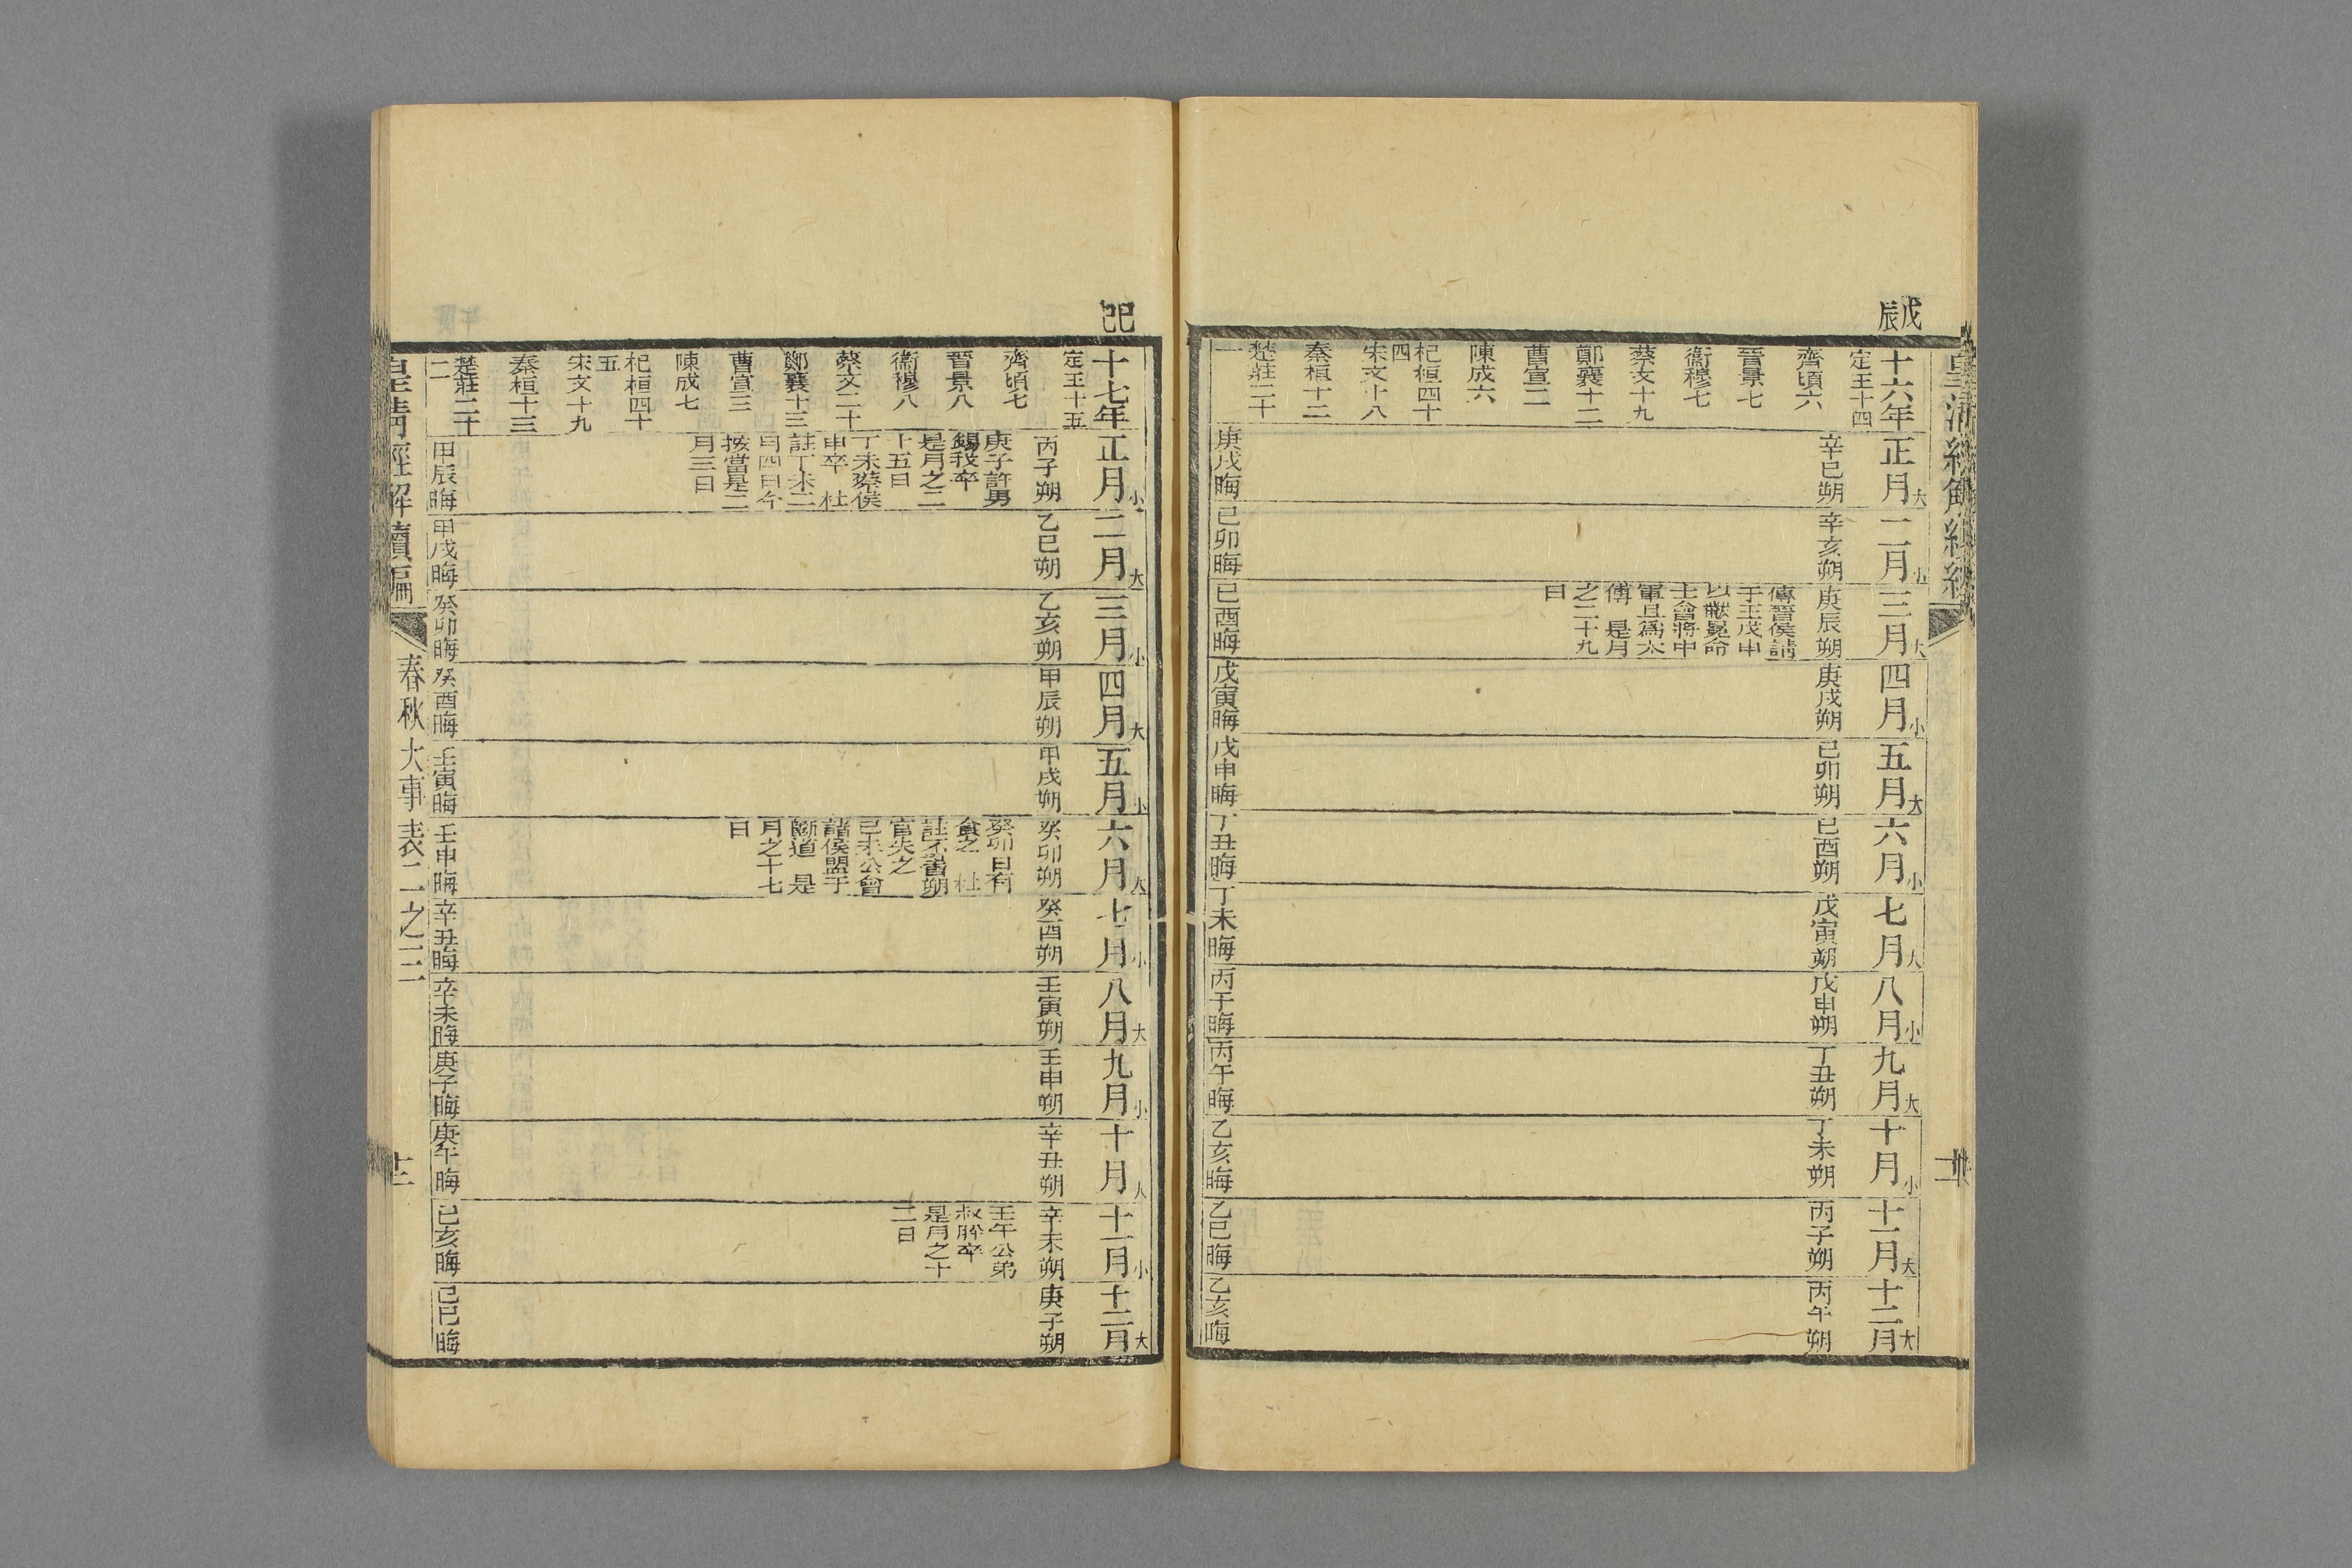 戊辰
十六年
定王十四
齊頃六
晉景七
衞穆七
蔡文十九
鄭襄十二
曹宣二
陳成六
杞桓四十
四
宋文十八
秦桓十二
楚莊二十
一
正月大
辛巳朔
庚戌晦
二月小
辛亥朔
己卯晦
三月大
庚辰朔
傳晉侯請
于王戊申
以黻冕命
士會將中
軍且爲太
傅　是月
之二十九
日
己酉晦
四月小
庚戌朔
戊寅晦
五月大
己卯朔
戊申晦
六月小
己酉朔
丁丑晦
七月大
戊寅朔
丁未晦
八月小
戊申朔
丙子晦
九月大
丁丑朔
丙午晦
十月小
丁未朔
乙亥晦
十一月大
丙子朔
乙巳晦
十二月大
丙午朔
乙亥晦
己巳
十七年
定王十五
齊頃七
晉景八
衞穆八
蔡文二十
鄭襄十三
曹宣三
陳成七
杞桓四十
五
宋文十九
秦桓十三
楚莊二十
二
正月小
丙子朔
庚子許男
錫我卒
是月之二
十五日
丁未蔡侯
申卒　杜
註丁未二
月四日今
按當是二
月三日
甲辰晦
二月大
乙巳朔
甲戌晦
三月小
乙亥朔
癸卯晦
四月大
甲辰朔
癸酉晦
五月小
甲戌朔
壬寅晦
六月大
癸卯朔
癸卯日有
食之　杜
註不書朔
官失之
己未公會
諸侯盟于
斷道　是
月之十七
日
壬申晦
七月小
癸酉朔
辛丑晦
八月大
壬寅朔
辛未晦
九月小
壬申朔
庚子晦
十月大
辛丑朔
庚午晦
十一月小
辛未朔
壬午公弟
叔肸卒
是月之十
二日
己亥晦
十二月大
庚子朔
己巳晦
皇清經解續編　春秋大事表二之三